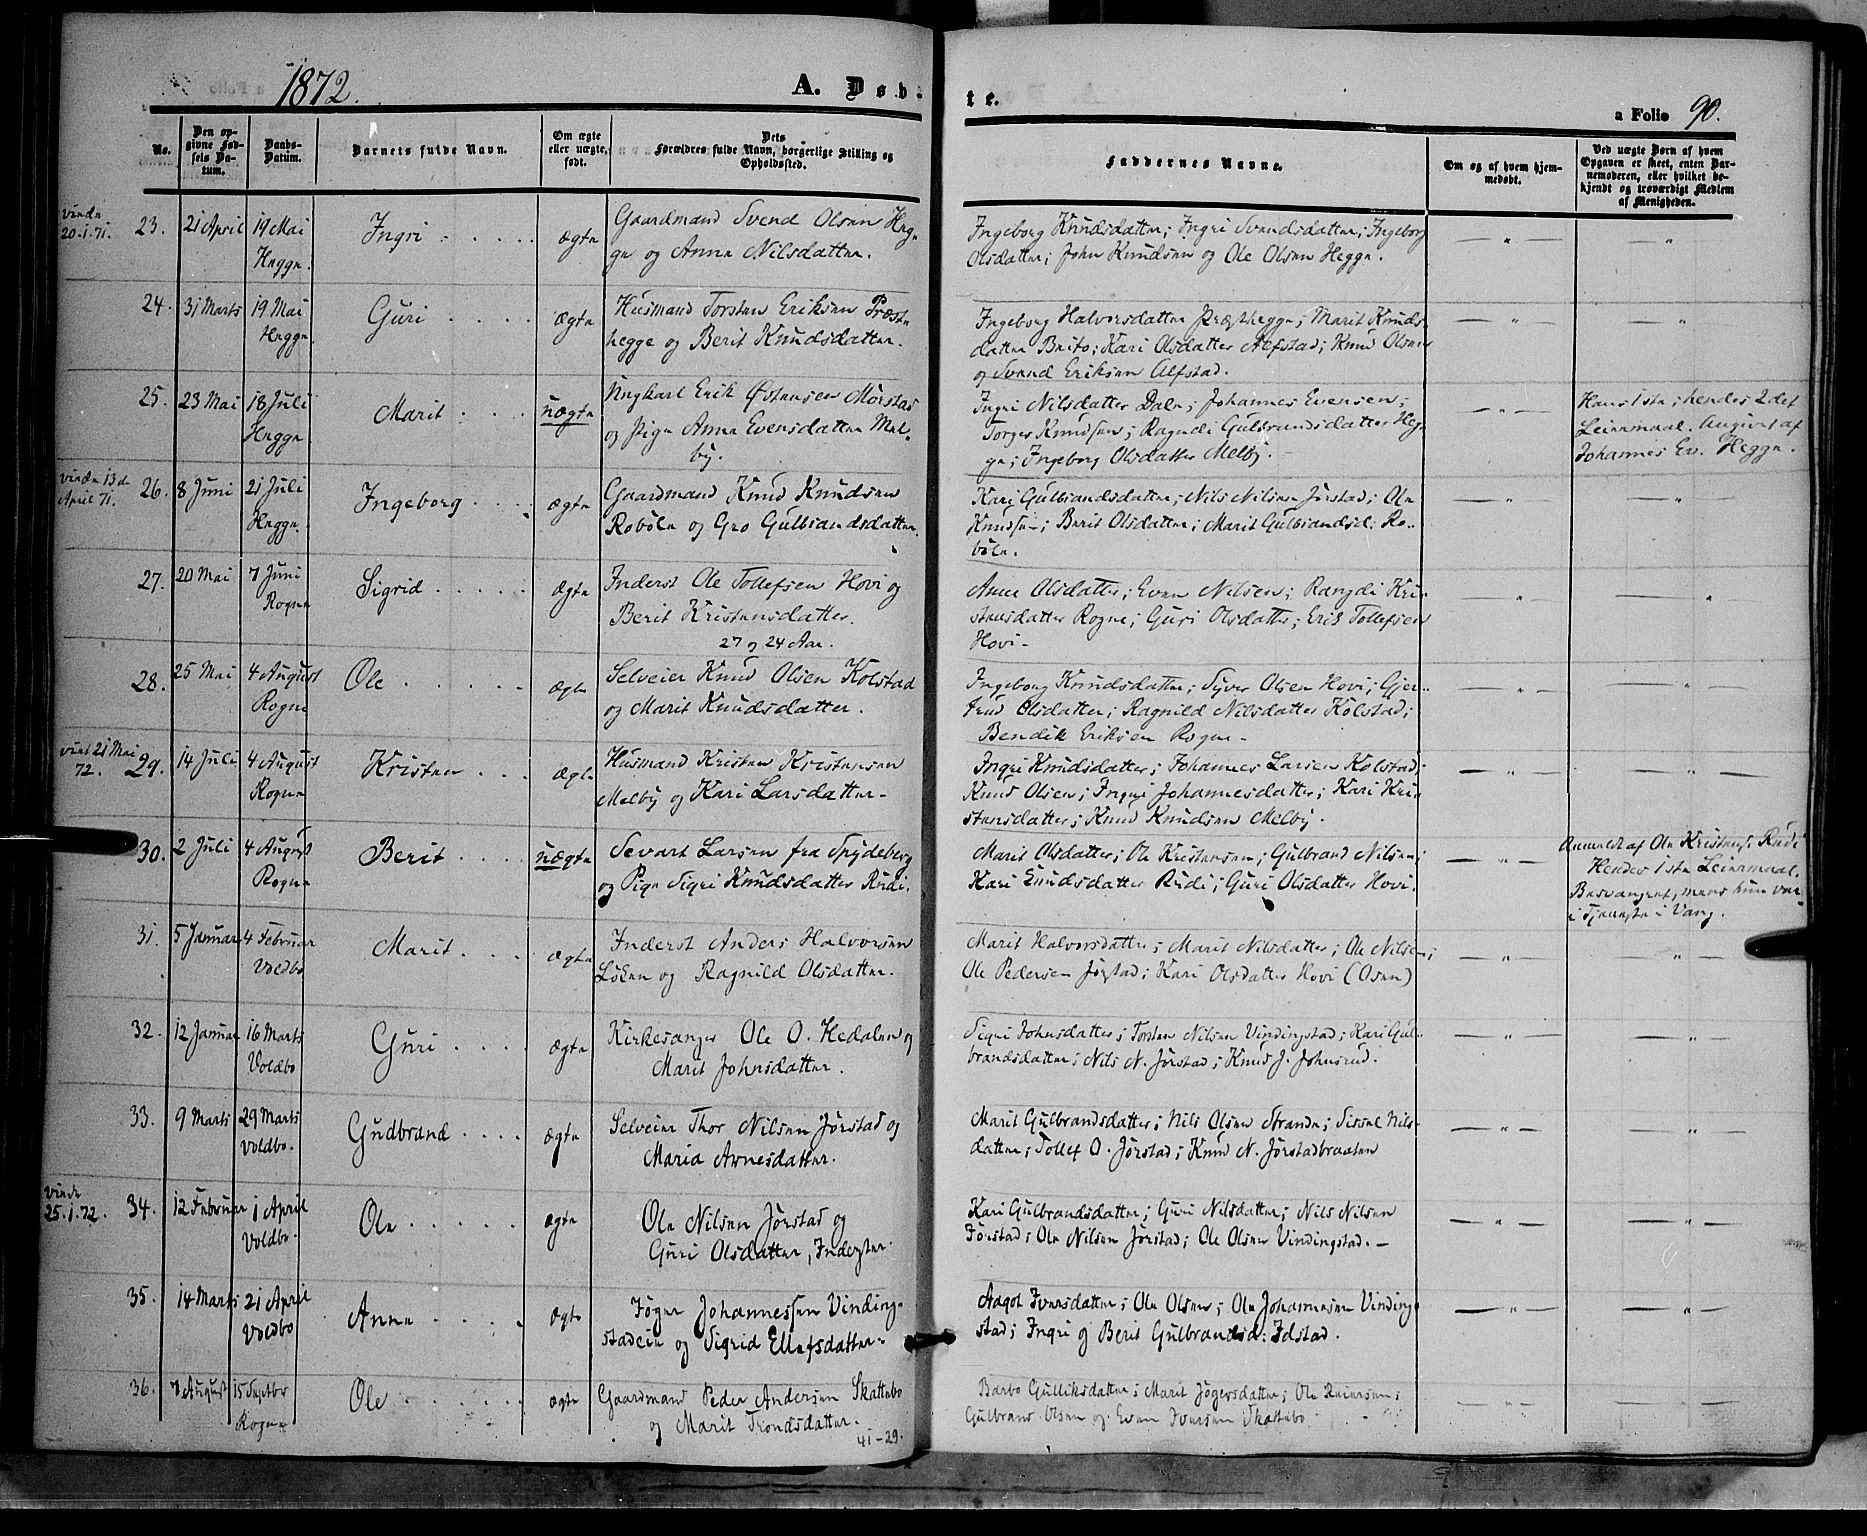 1872.
A. Døb-
te.
a Folio 90.
No.
Den op-
givne Fød-
sels Da-
tum.
Daabs-
Datum.
Barnets fulde Navn.
Om ægte
eller uægte
født.
Dets
Forældres fulde Navn, borgerlige Stilling og
Opholdssted.
Faddernes Navne.
Om og af hvem hjem-
medøbt.
Ved uægte Børn af hvem
Opgaven er skeet, enten Bar-
nemoderen, eller hvilket be-
kjendt og troværdigt Medlem
af Menigheden.
20.1.71.
23. 21 April 19 Mai Hegge. Ingri ægte
Gaardmand Svend Olsen Heg-
ge og Anne Nilsdatter.
Ingeborg Knudsdatter; Ingri Svendsdatter; Ingeborg
Olsdatter; John Knudsen og Ole Olsen Hegge.
24. 31 Marts 19 Mai Hegge. Guri ægte
Husmand Torsten Eriksen Præst-
hegge og Berit Knudsdatter.
Ingeborg Halvorsdatter Præsthegge; Marit Knuds-
datter Brito; Kari Olsdatter Alfstad; Knud Olsen
og Svend Eriksen Alfstad.
25. 23 Mai 18 Juli Hegge Marit uægte
Ungkarl Erik Østensen Mørstad
og Pige Anne Evensdatter Mel-
by.
Ingri Nilsdatter Dale; Johannes Evensen;
Torger Knudsen; Ragndi Gulbrandsdatter Heg-
ge; Ingeborg Olsdatter Melby.
Hans 1ste; hendes 2det
Leiermaal. Angivet af
Johannes Ev. Hegge.
13de
April 71.
26. 8 Juni 21 Juli Hegge. Ingeborg ægte
Gaardmand Knud Knudsen
Robøle og Gro Gulbrandsdatter.
Kari Gulbrandsdatter; Nils Nilsen Jørstad; Ole
Knudsen; Berit Olsdatter; Marit Gulbrandsd. Ro-
bøle.
27. 20 Mai 7 Juni Rogne Sigrid ægte
Inderst Ole Tollefsen Hovi og
Berit Kristensdatter.
27 og 24 Aar.
Anne Olsdatter; Even Nilsen; Rangdi Kri-
stensdatter Rogne; Guri Olsdatter; Erik Tollefsen
Hovi -
28. 25 Mai 4 August Rogne Ole ægte
Selveier Knud Olsen Kolstad
og Marit Knudsdatter.
Ingeborg Knudsdatter; Syver Olsen Hovi; Gjer-
trud Olsdatter; Ragnild Nilsdatter Kolstad;
Bendik Eriksen Rogne -
21 Mai
72.
29. 14 Juli 4 August Rogne Kristen ægte
Husmand Kristen Kristensen
Melby og Kari Larsdatter -
Ingri Knudsdatter; Johannes Larsen Kolstad;
Knud Olsen; Ingri Johannesdatter; Kari Kri-
stensdatter; Knud Knudsen Melby.
30. 2 Juli 4 August Rogne Berit uægte
Sevart Larsen fra Spydeberg
og Pige Sigri Knudsdatter Rudi.
Marit Olsdatter; Ole Kristensen; Gulbrand Nilsen;
Kari Knudsdatter Rudi; Guri Olsdatter Hovi.
Anmeldt af Ole Kristens. Rudi
Hendes 1ste Leiermaal.
Besvangret, mens hun var
i Tjeneste i Vang.
31. 5 Januar 4 Februar Voldbo Marit ægte
Inderst Anders Halvorsen
Løken og Ragnild Olsdatter.
Marit Halvorsdatter; Marit Nilsdatter; Ole Nilsen;
Ole Pedersen Jørstad; Kari Olsdatter Hovi (Osen)
32. 12 Januar 16 Marts Voldbo Guri ægte
Kirkesanger Ole O. Hedalen og
Marit Johnsdatter.
Sigri Johnsdatter; Torsten Nilsen Vindingstad; Kari Gul-
brandsdatter; Nils N. Jørstad; Knud J. Johnsrud.
33. 9 Marts 29 Marts Voldbo. Gudbrand ægte
Selveier Thor Nilsen Jørstad og
Maria Arnesdatter.
Marit Gulbrandsdatter; Nils Olsen Strande; Sissel Nils-
datter; Tollef O. Jørstad; Knud N. Jørstadbraaten
25.1.72.
34. 12 Februar 1 April Voldbo. Ole ægte
Ole Nilsen Jørstad og
Guri Olsdatter, Inderster.
Kari Gulbrandsdatter; Guri Nilsdatter; Nils Nilsen
Jørstad; Ole Nilsen Jørstad; Ole Olsen Vindingstad. -
35. 14 Marts 21 April Voldbo Anne ægte
Jøger Johannessen Vinding-
stadeie og Sigrid Ellefsdatter.
Aagot Iversdatter; Ole Olsen; Ole Johannesen Vinding-
stad; Ingri og Berit Gulbrandsd: Idstad.
36. 7 August 15 Septbr Rogne Ole ægte
Gaardmand Peder Andersen Skattebo
og Marit Trondsdatter.
41-29.
Barbo Gulliksdatter; Marit Jøgersdatter; Ole
Gulbrand Olsen og Even Iversen Skattebo.